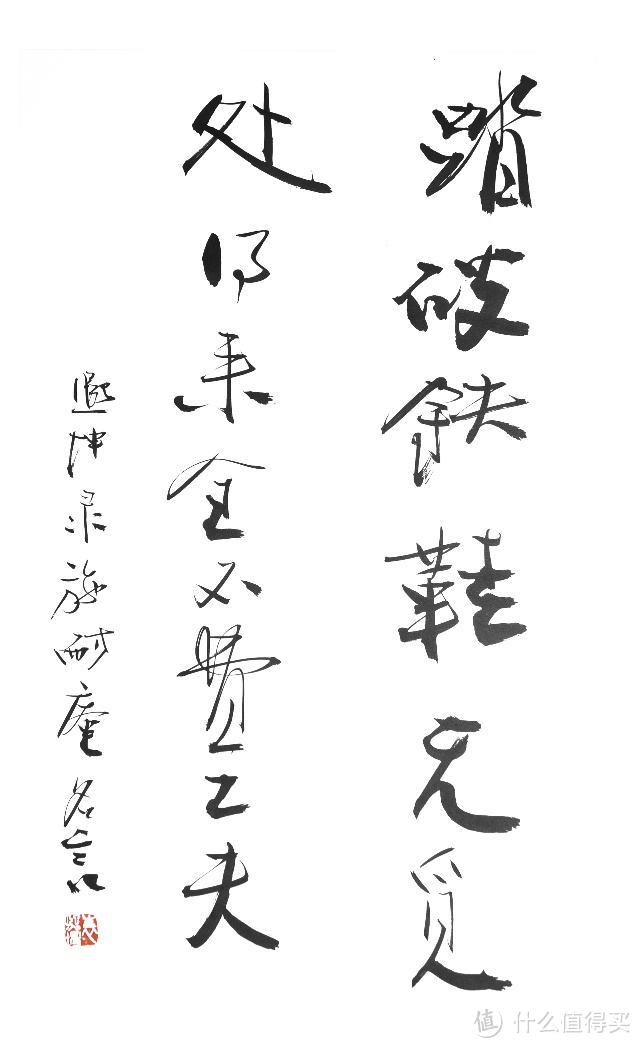 踏破铁鞋无觅
处得来全不费工夫
坤录施耐庵名言
值 什么值得买